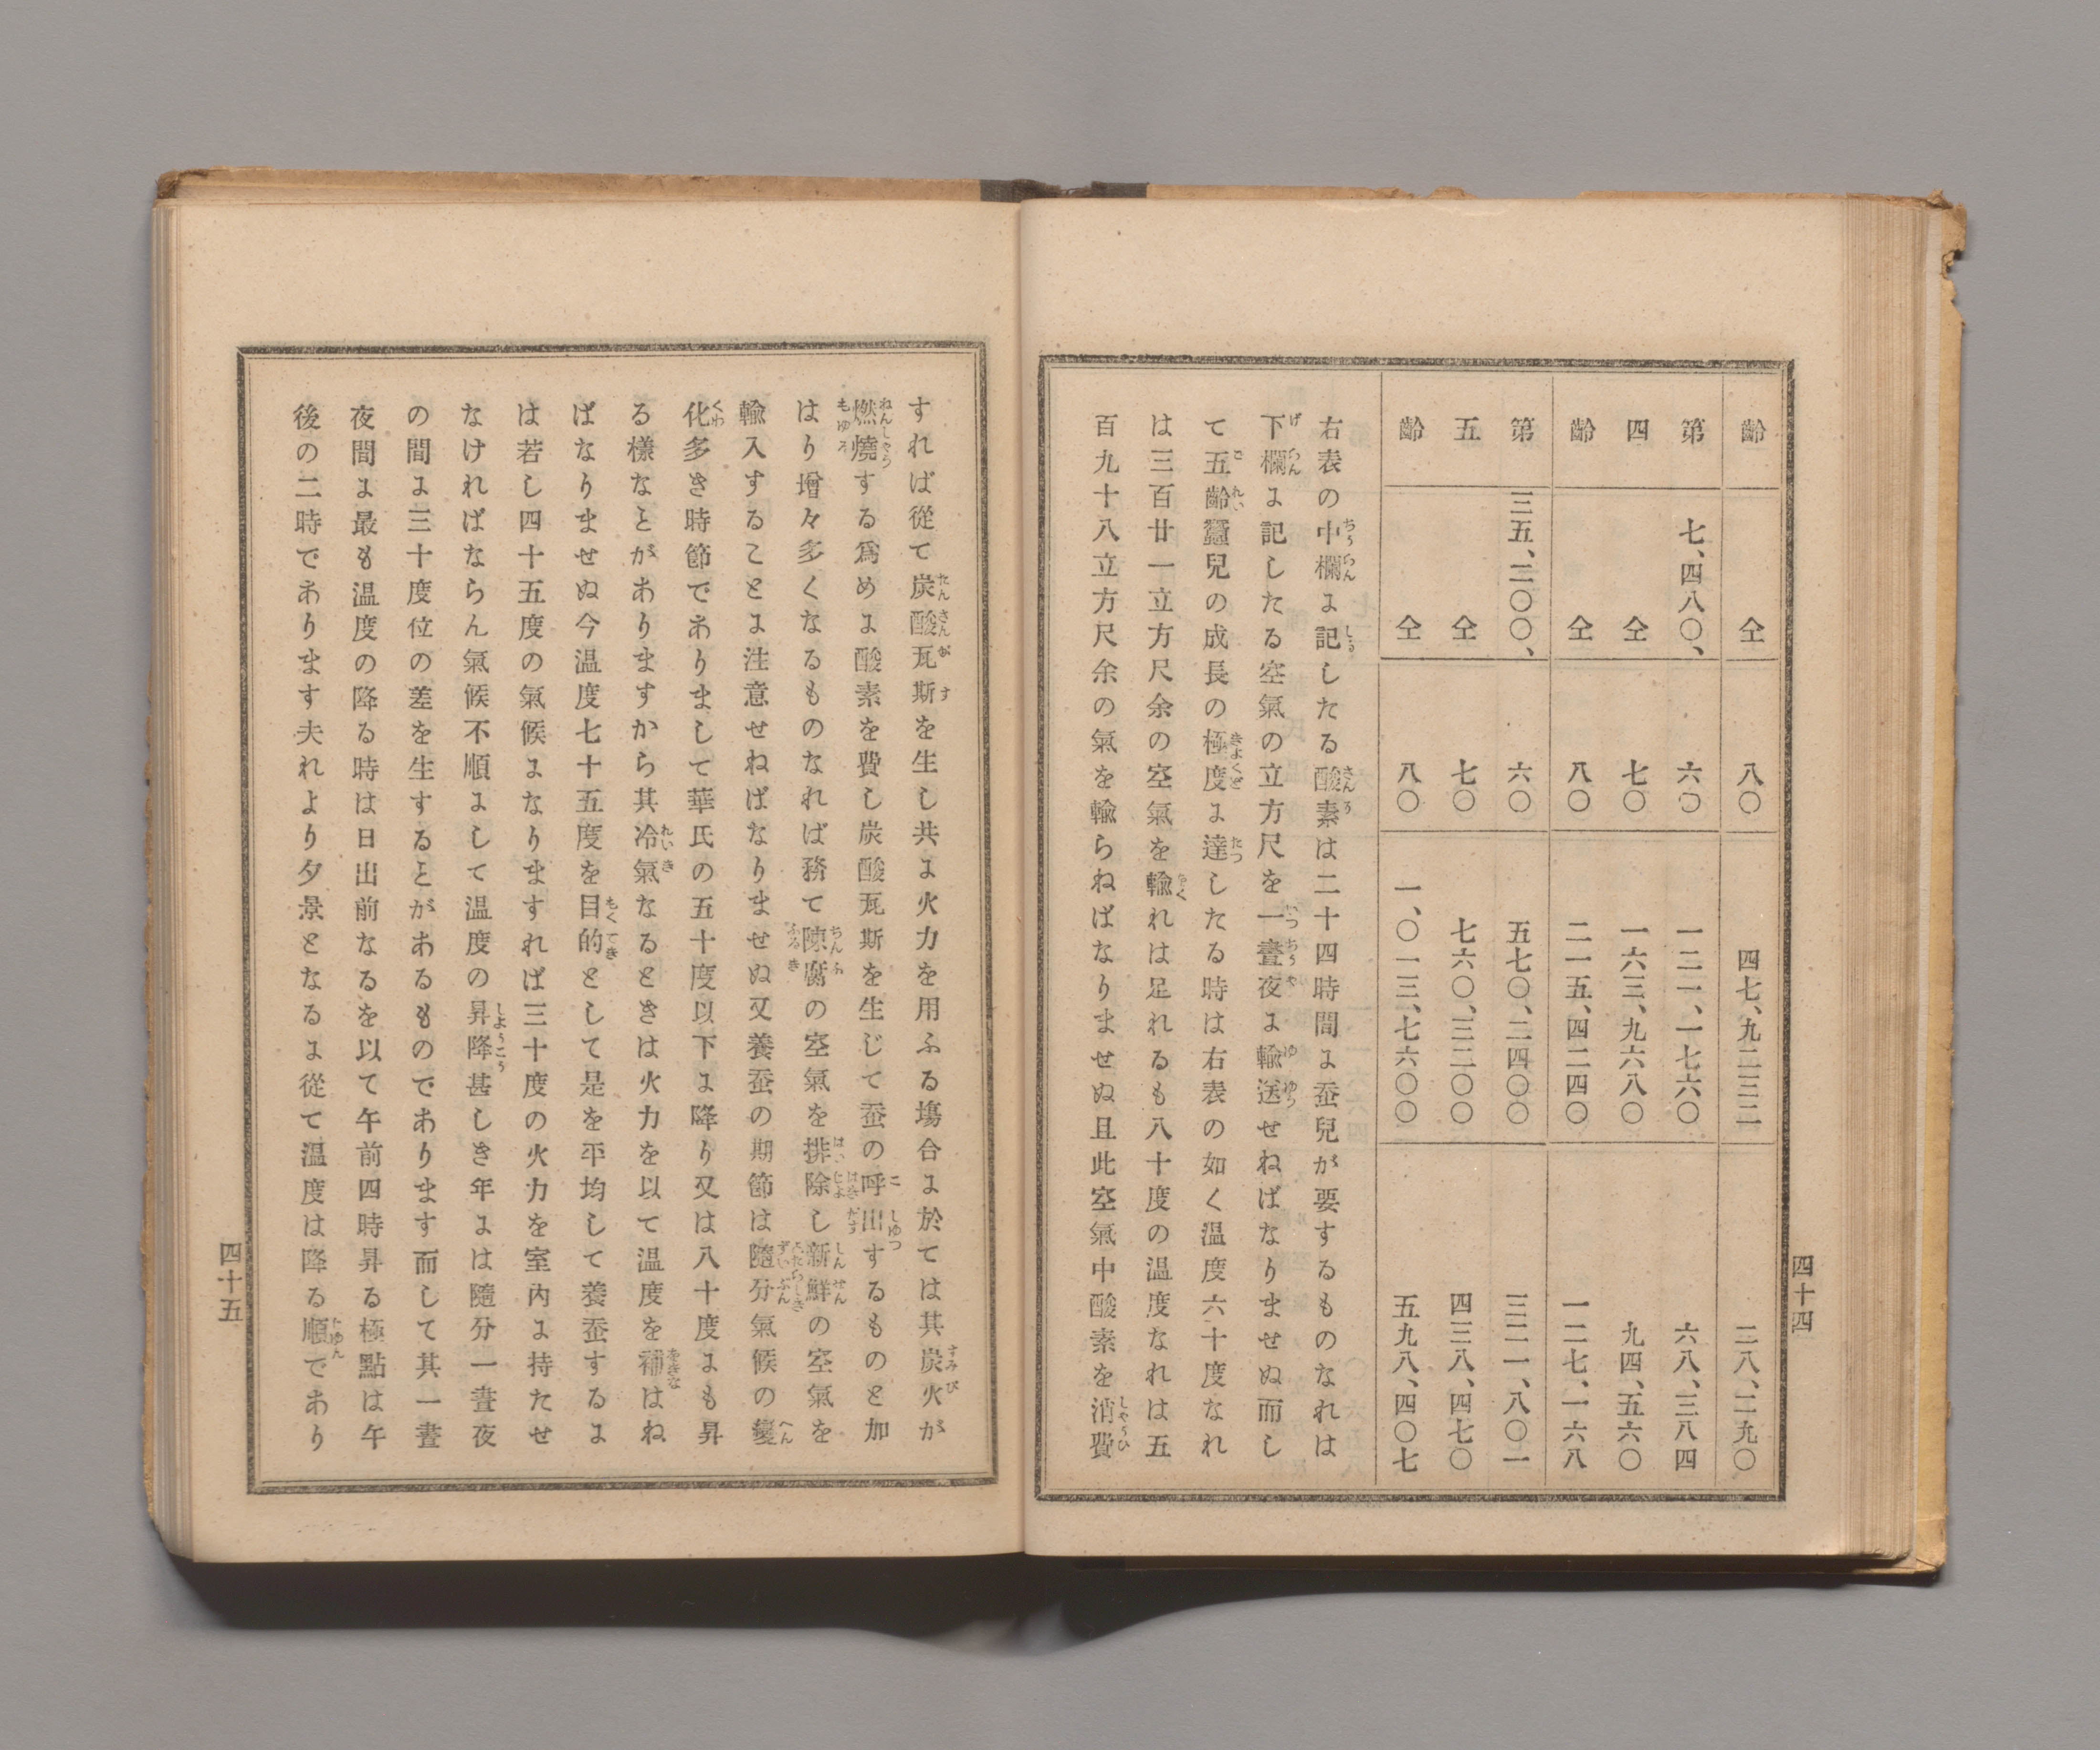 齡 仝 八〇 四七、九二三二 二八、二九〇
第 七、四八〇、 六〇 一二一、一七六〇 六八、三八四
四 仝 七〇 一六三、九六八〇 九四、五六〇
齡 仝 八〇 二一五、四二四〇 一二七、一六八
第 三五、二〇〇、 六〇 五七〇、二四〇〇 三二一、八〇一
五 仝 七〇 七六〇、三二〇〇 四三八、四七〇
齡 仝 八〇 一、〇一三、七六〇〇 五九八、四〇七
右表の中欄に記したる酸素は二十四時間に蚕兒が要するものなれは
下欄に記したる空氣の立方尺を一晝夜に輸送せねばなりませぬ而し
て五齡蠶兒の成長の極度に達したる時は右表の如く温度六十度なれ
は三百廿一立方尺余の空氣を輸れは足れるも八十度の温度なれは五
百九十八立方尺余の氣を輸らねばなりませぬ且此空氣中酸素を消費
四十四
すれば從て炭酸瓦斯を生し共に火力を用ふる塲合に於ては其炭火が
燃燒する爲めに酸素を費し炭酸瓦斯を生じて蚕の呼出するものと加
はり增々多くなるものなれば務て陳腐の空氣を排除し新鮮の空氣を
輸入することに注意せねばなりませぬ又養蚕の期節は隨分氣候の變
化多き時節でありまして華氏の五十度以下に降り又は八十度にも昇
る樣なとがありますから其冷氣なるときは火力を以て温度を補はね
ばなりませぬ今温度七十五度を目的として是を平均して養蚕するに
は若し四十五度の氣候になりますれば三十度の火力を室内に持たせ
なければならん氣候不順にして温度の昇降甚しき年には隨分一晝夜
の間に三十度位の差を生するとがあるものであります而して其一晝
夜間に最も温度の降る時は日出前なるを以て午前四時昇る極點は午
後の二時であります夫れより夕景となるに從て温度は降る順であり
四十五